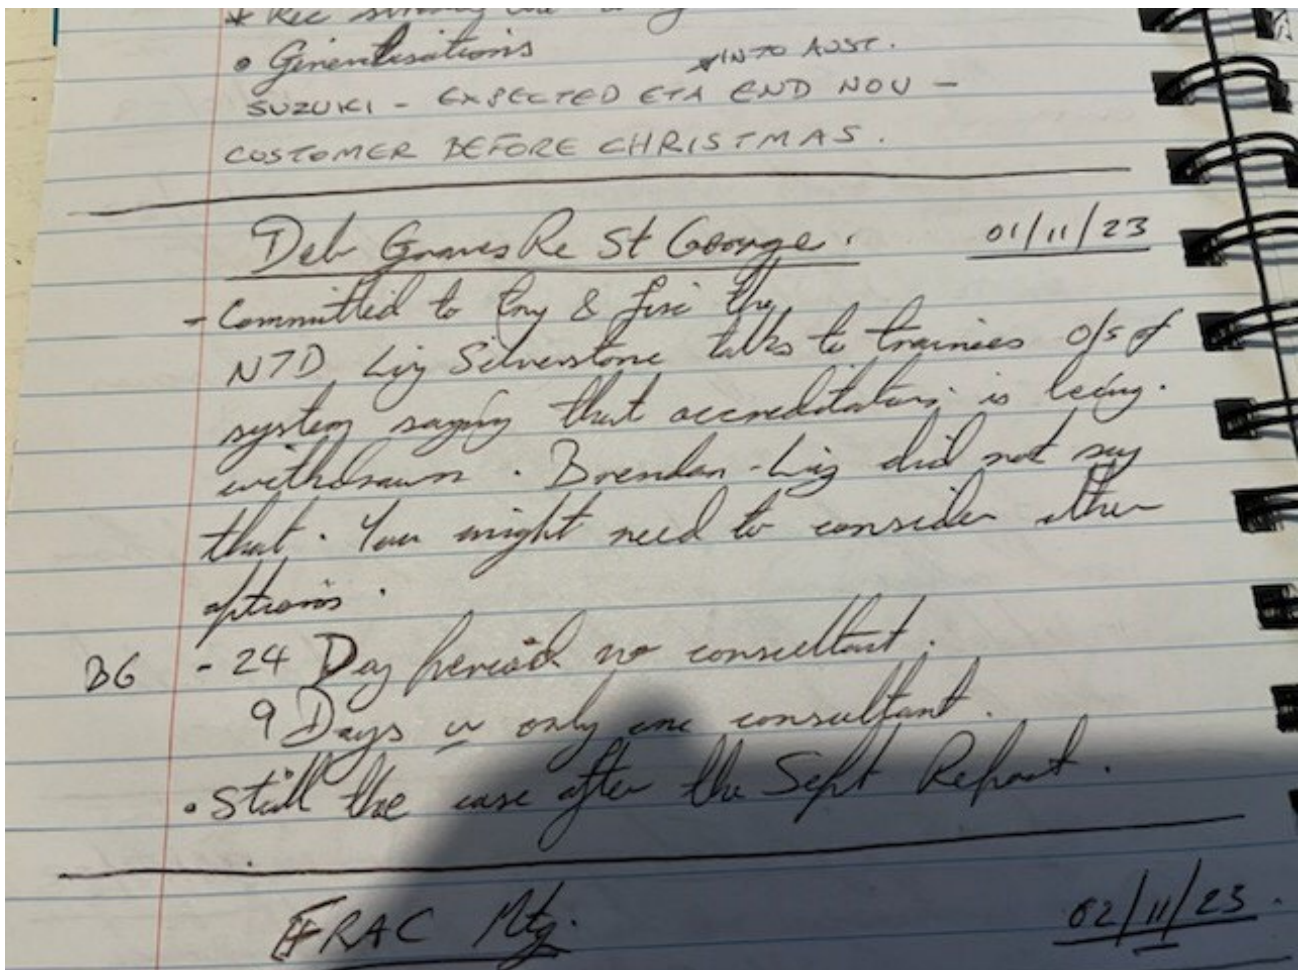 * Rec
• Generalisations
INTO AUST.
SUZUKI - EXPECTED ETA END NOV -
CUSTOMER BEFORE CHRISTMAS.
Deb Graves Re St George. 01/11/23
- Committed to try & fix the
NTD Liz Silverstone talks to trainees o/s of
system saying that accreditation is being
withdrawn. Brendan - Liz did not say
that. You might need to consider other
options.
BG - 24 Day period no consultant.
9 Days w only one consultant.
• Still the case after the Sept Report.
FRAC Mtg. 02/11/23.